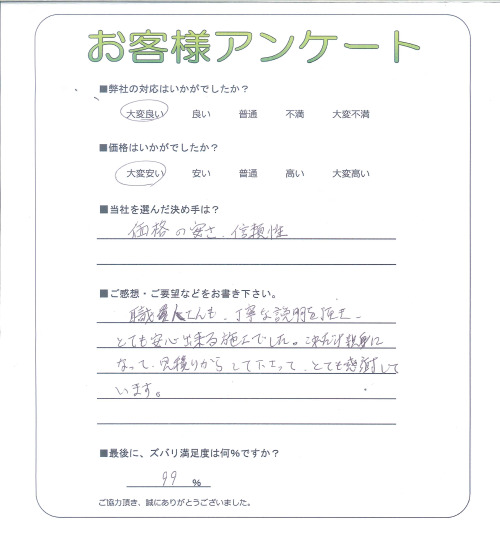 お客様アンケート
■弊社の対応はいかがでしたか？
大変良い 良い 普通 不満 大変不満
■価格はいかがでしたか？
大変安い 安い 普通 高い 大変高い
■当社を選んだ決め手は？
価格の安さ、信頼性
■ご感想・ご要望などをお書き下さい。
職人さんも、丁寧な説明を頂き、
とても安心出来る施工でした。これだけ親身に
なって、見積りから して下さって、とても感謝して
います。
■最後に、ズバリ満足度は何%ですか？
99 %
ご協力頂き、誠にありがとうございました。